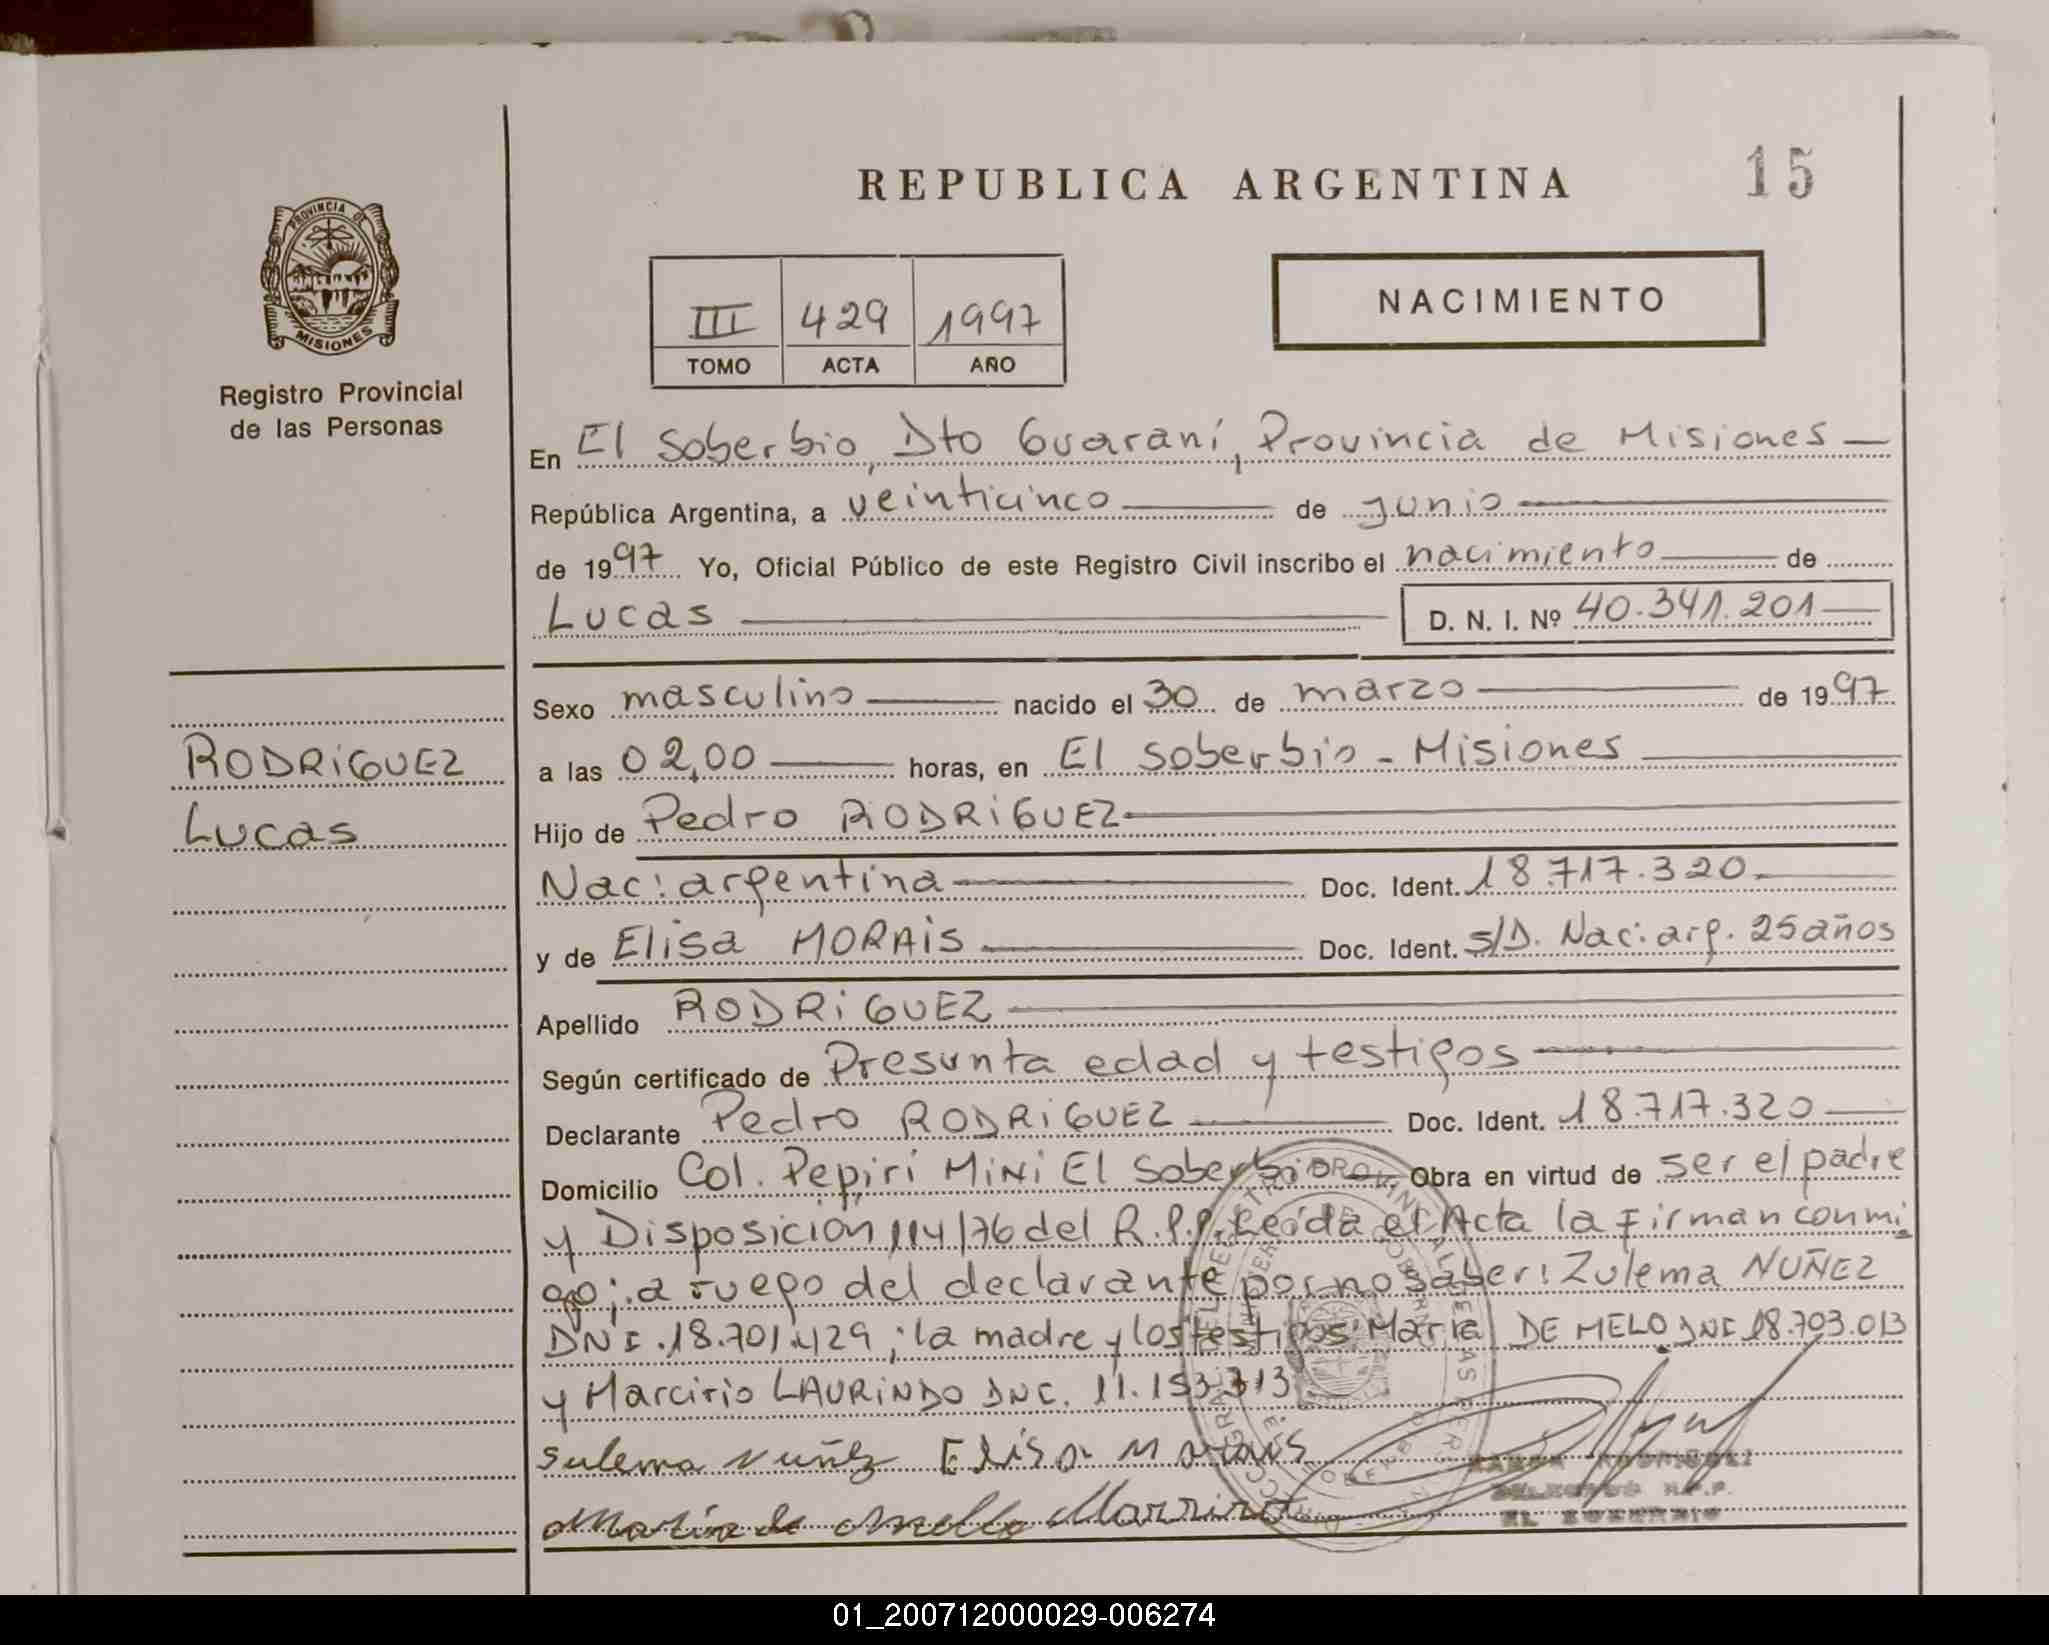 REPUBLICA ARGENTINA
15
PROVINCIA DE
MISIONES
Registro Provincial
de las Personas
III
429
1997
TOMO
ACTA
AÑO
NACIMIENTO
En El Soberbio, Dto Guaraní, Provincia de Misiones
República Argentina, a veinticinco de junio
de 1997 Yo, Oficial Público de este Registro Civil inscribo el nacimiento de
Lucas D. N. I. Nº 40.341.201
RODRIGUEZ
Lucas
Sexo masculino nacido el 30 de marzo de 1997
a las 02,00 horas, en El Soberbio - Misiones
Hijo de Pedro RODRIGUEZ
Nac: argentina Doc. Ident. 18.717.320.
y de Elisa MORAIS Doc. Ident. S/D. Nac: arg. 25 años
Apellido RODRIGUEZ
Según certificado de Presunta edad y testigos
Declarante Pedro RODRIGUEZ Doc. Ident. 18.717.320
Domicilio Col. Pepirí MiNi El Soberbio Obra en virtud de ser el padre
y Disposición 114/76 del R.P.P. Leída el Acta la firman conmi
go; a ruego del declarante por no saber: Zulema NUÑEZ
DNI. 18.701.429; la madre y los testigos María DE MELO DNI 18.703.013
y Marcirio LAURINDO DNI. 11.153.313
Sulema Nuñez Elisa Morais
María de Mello
RAMON RODRIGUEZ
R.P.P.
EL SOBERBIO
01_200712000029-006274